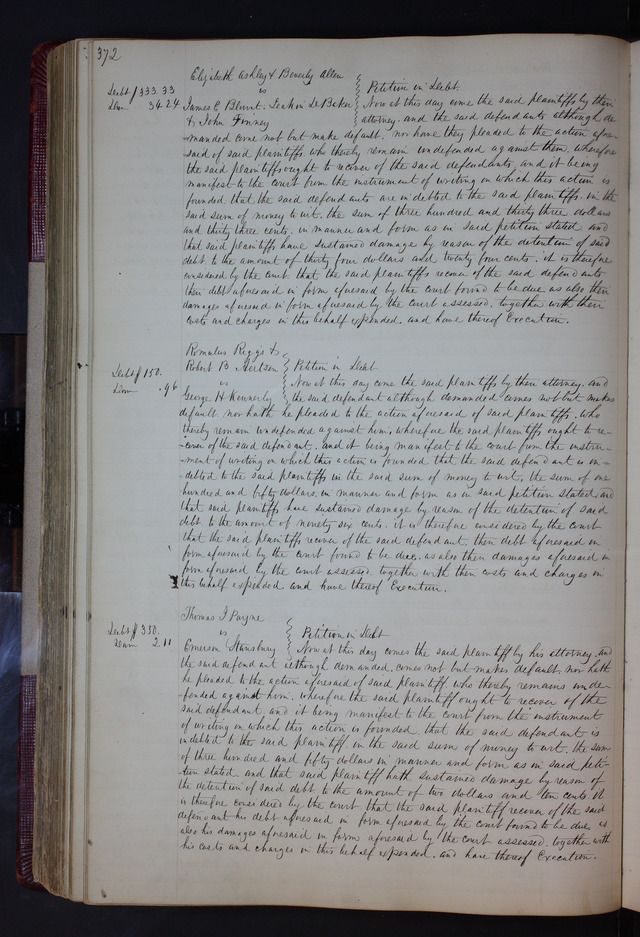 372
Elizabeth Ashley & Beverly Allen
vs
Petition in Debt.
Debt $333.33
Dam 34.24
James C Blount. De Baker
& John Finney
Now at this day come the said plaintiffs by their
attorney. and the said defendants although de-
manded come not but make default. nor have they pleaded to the action afore-
said of said plaintiffs. who thereby remain undefended against them. wherefore
the said plaintiffs ought to recover of the said defendants, and it being
manifest to the court from the instrument of writing on which this action is
founded that the said defendants are indebted to the said plaintiffs. in the
said sum of money to wit, the sum of three hundred and thirty three dollars
and thirty three cents. in manner and form as in said petition stated and
that said plaintiffs have sustained damage by reason of the detention of said
debt. to the amount of thirty four dollars and twenty four cents. it is therefore
considered by the court that the said plaintiffs recover of the said defendants
their debt aforesaid in form aforesaid by the court found to be due as also their
damages aforesaid in form aforesaid by the court assessed. together with their
costs and charges in this behalf expended. and have thereof Execution.
Romulus Riggs &
Robert B
Petition in Debt
Debt $150.
Dam .96
vs
George H Kennerly
Now at this day come the said plaintiffs by their attorney. and
the said defendant although demanded comes not but makes
default. nor hath he pleaded to the action aforesaid of said plaintiffs. who
thereby remain undefended against him. wherefore the said plaintiffs ought to re-
-cover of the said defendant. and it being manifest to the court from the instru-
-ment of writing on which this action is founded that the said defendant is in-
-debted to the said plaintiffs in the said sum of money to wit, the sum of one
hundred and fifty dollars. in manner and form as in said petition stated. and
that said plaintiffs have sustained damage by reason of the detention of said
debt. to the amount of ninety six cents. it is therefore considered by the court
that the said plaintiffs recover of the said defendant. their debt aforesaid in
form aforesaid by the court found to be due. as also their damages aforesaid in
form aforesaid by the court assessed. together with their costs and charges in
this behalf expended. and have thereof Execution.
Thomas J Payne
vs
Petition in Debt
Debt $350.
Dam 2.11
Emerson Stansbury
Now at this day comes the said plaintiff by his attorney. and
the said defendant although demanded. comes not but makes default. nor hath
he pleaded to the action aforesaid of said plaintiff who thereby remains unde-
-fended against him. wherefore the said plaintiff ought to recover of the
said defendant and it being manifest to the court from the instrument
of writing on which this action is founded, that the said defendant is
indebted to the said plaintiff in the said sum of money to wit. the sum
of three hundred and fifty dollars in manner and form as in said peti-
-tion stated. and that said plaintiff hath sustained damage by reason of
the detention of said debt to the amount of two dollars and ten cents. it
is therefore considered by the court that the said plaintiff recover of the said
defendant his debt aforesaid in form aforesaid by the court found to be due as
also his damages aforesaid in form aforesaid by the court assessed. together with
his costs and charges in this behalf expended. and have thereof Execution.